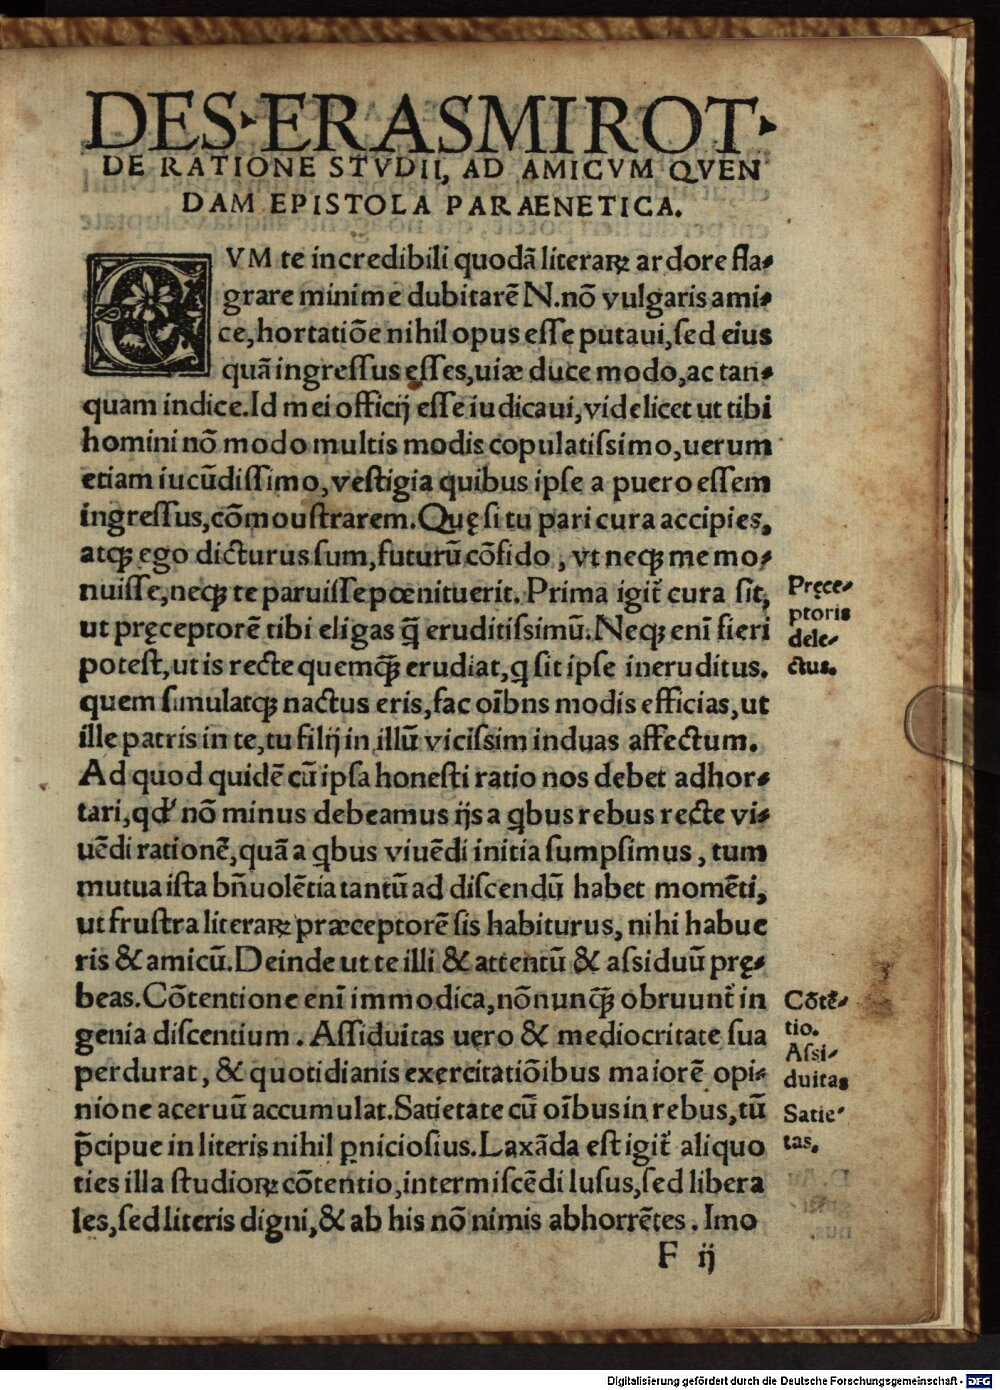 DES·ERASMI ROT·
DE RATIONE STVDII, AD AMICVM QVEN
DAM EPISTOLA PARAENETICA.
CVM te incredibili quodā literaꝝ ardore fla-
grare minime dubitarē N. nō vulgaris ami-
ce, hortatiōe nihil opus eſſe putaui, ſed eius
quā ingreſſus eſſes, uiæ duce modo, ac tan-
quam indice. Id mei officij eſſe iudicaui, videlicet ut tibi
homini nō modo multis modis copulatiſsimo, uerum
etiam iucūdiſſimo, veſtigia quibus ipſe a puero eſſem
ingreſſus, cōmouſtrarem. Quę ſi tu pari cura accipies,
atqꝫ ego dicturus ſum, futurū cōfido, vt neqꝫ me mo-
nuiſſe, neqꝫ te paruiſſe pœnituerit. Prima igit̃ cura ſit,
Pręce-
ptoris
dele-
ctus.
ut pręceptorē tibi eligas q̃ eruditiſsimū. Neqꝫ enī fieri
poteſt, ut is recte quemq̃ꝫ erudiat, ꝗ ſit ipſe ineruditus.
quem ſimulatqꝫ nactus eris, fac oībns modis efficias, ut
ille patris in te, tu filij in illū viciſsim induas affectum.
Ad quod quidē cū ipſa honeſti ratio nos debet adhor-
tari, qd' nō minus debeamus ijs a ꝗbus rebus recte vi-
uēdi rationē, quā a ꝗbus viuēdi initia ſumpſimus, tum
mutua iſta bñuolētia tantū ad diſcendū habet momēti,
ut fruſtra literaꝝ præceptorē ſis habiturus, nihi habue
ris & amicū. Deinde ut te illi & attentū & aſsiduū prę-
beas. Cōtentione enī immodica, nōnunq̃ꝫ obruunt̃ in
Cōtē-
tio.
genia diſcentium. Aſſiduitas uero & mediocritate ſua
Aſsi-
duitas
perdurat, & quotidianis exercitatiōibus maiorē opi-
nione aceruū accumulat. Satietate cū oībus in rebus, tū
Satie-
tas.
p̃cipue in literis nihil ꝑnicioſius. Laxāda eſt igit̃ aliquo
ties illa ſtudioꝝ cōtentio, intermiſcēdi luſus, ſed libera
les, ſed literis digni, & ab his nō nimis abhorrētes. Imo
F ij
Digitalisierung gefördert durch die Deutsche Forschungsgemeinschaft - DFG